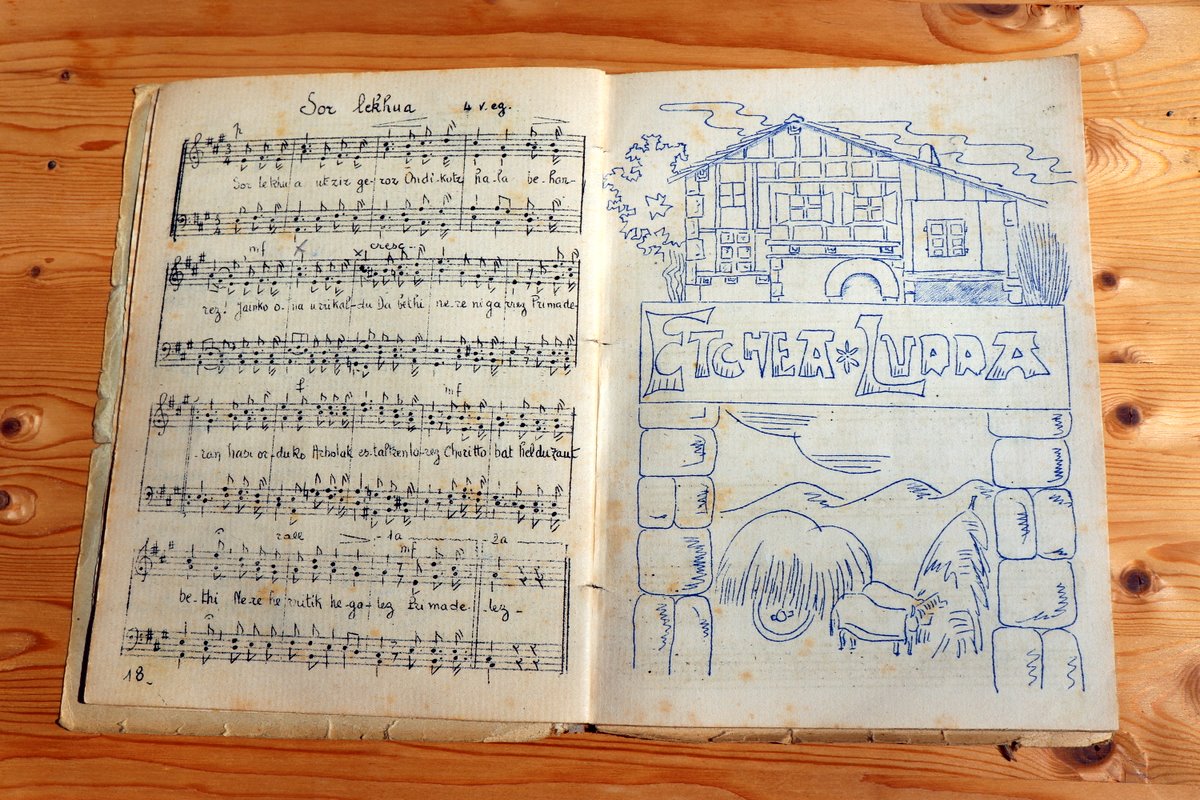 Sor lekhua 4 v. eg.
p
Sor lekhu a utziz ge-roz Ondi-kotz ha-la be-har-
mf cresc--
rez! Jainko o-na urrikal-du Da bethi ne-re nigarrez Primade-
f mf
-ran hasi or-duko Arbolak es-taltzen lo-rez Choritto bat heldu zaut
rall 1a 2a
mf
be-thi Ne-re he rritik he-ga-lez Primade- lez-
18_
ETCHEA * LURRA